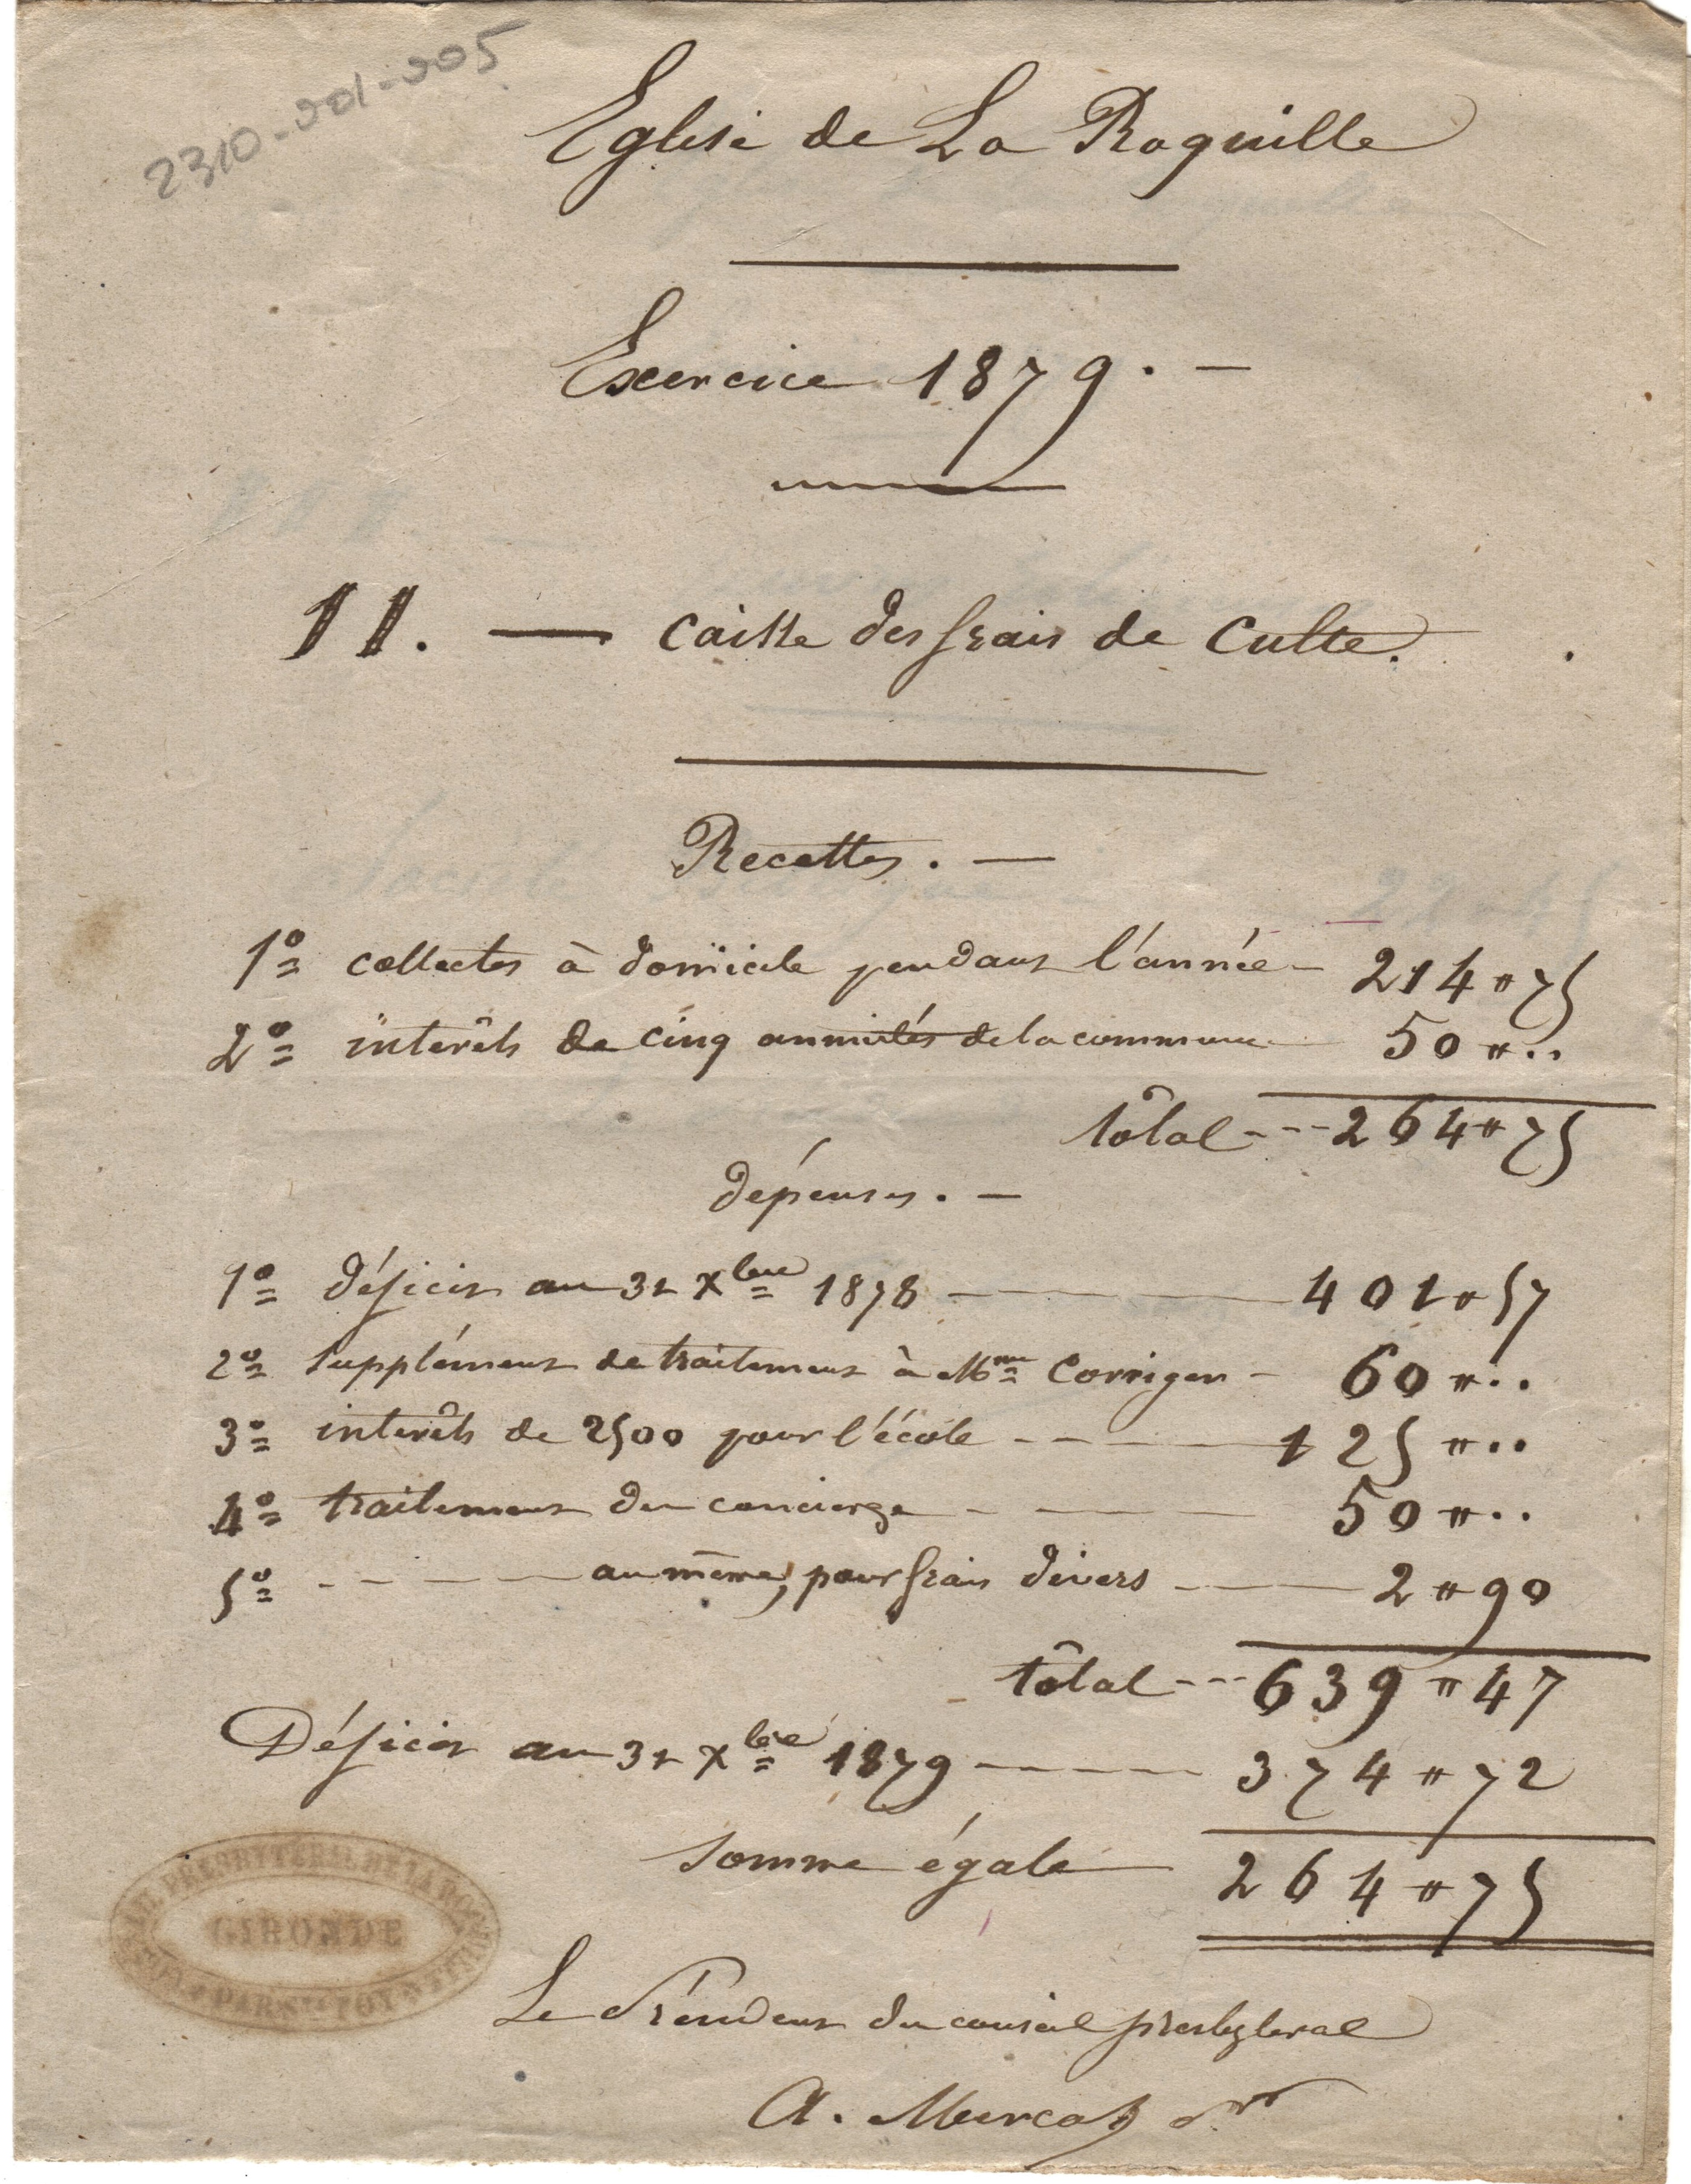 2310-001-005
Eglise de La Roquille
Exercice 1879. —
11. — caisse des frais de culte.
Recettes. —
1º collectes à domicile pendant l'année — 214 " 75
2º intérêts de cinq annuités de la commune 50 " ..
tôtal --- 264 " 75
dépenses. —
1º déficit au 31 Xbre 1878 — 401 " 57
2º supplément de traitement à Mme Corriger - 60 " ..
3º intérêts de 2500 pour l'école --- 125 " ..
4º traitement du concierge - — 50 " ..
5º - — au même, pour frais divers — 2 " 90
tôtal --- 639 " 47
Déficit au 31 Xbre 1879 ---- 374 " 72
somme égale — 264 " 75
PRESBYTÉRAL DE LA ROQUILLE
GIRONDE
PAR Ste FOY
Le Président du conseil presbyteral
A. Mercat pr